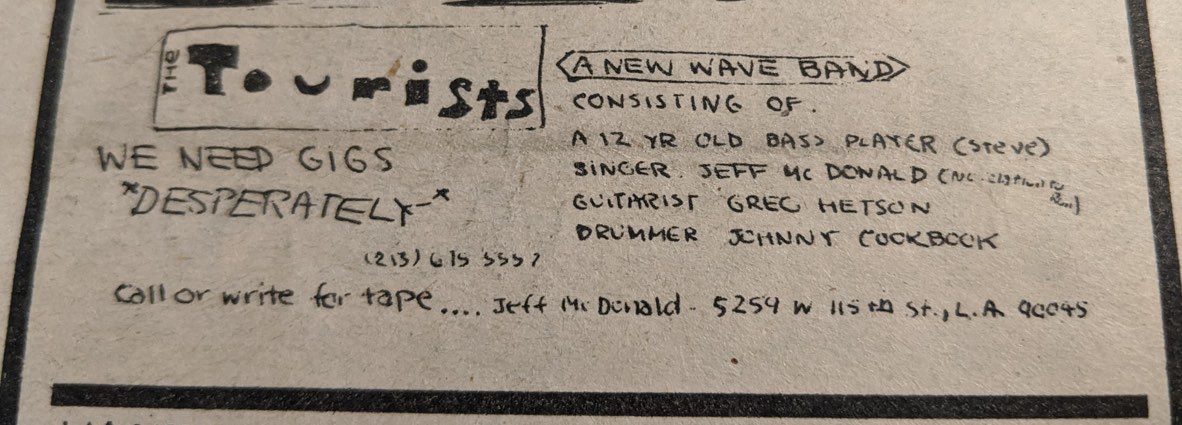 THE Tourists
WE NEED GIGS
*DESPERATELY-*
(213) 675
Call or write for tape.... Jeff Mc Donald - 5259 W 115th St., L.A. 90045
<A NEW WAVE BAND>
CONSISTING OF.
A 12 YR OLD BASS PLAYER (Steve)
SINGER. JEFF MC DONALD (NO
GUITARIST GREG HETSON
DRUMMER JOHNNY COOKBOOK